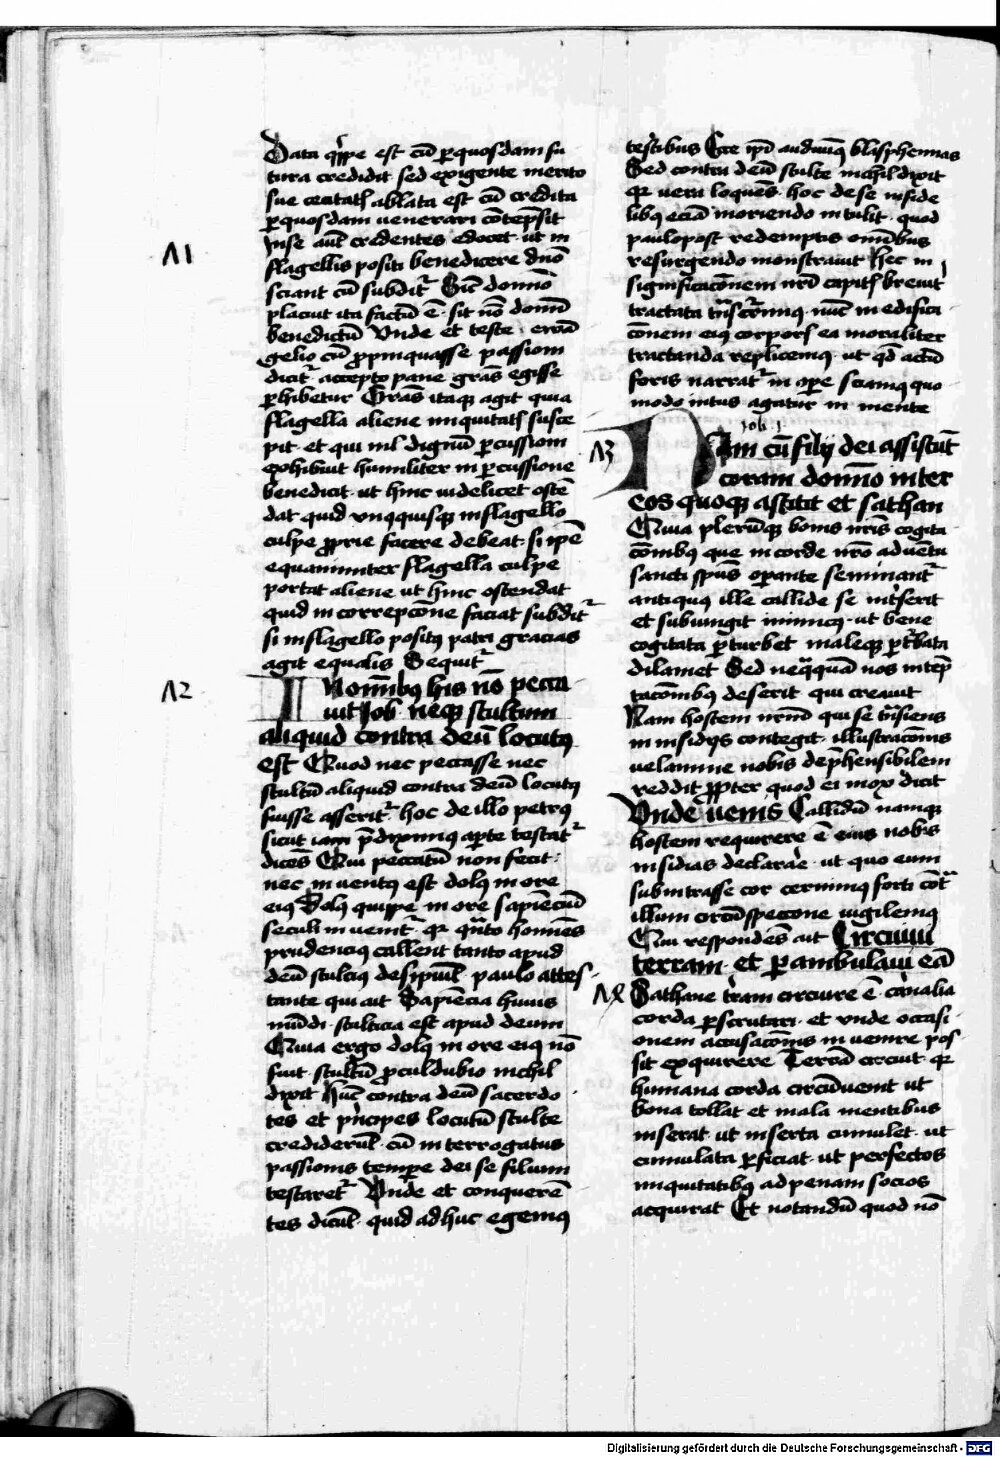 Data q̄ppe est cū p̱quosdam fu
tura credidit sed exigente merito
sue cecitatꝭ ablata est cū credita
p̱quosdam uenerari cōtēpsit
Ipse aūt credentes edocet · ut in
flagellis positi benedicere dn̄o
sciant cū subditr̄ Sic̄ domīo
placuit ita factū ē · sit nō domī
benedictū Vnde et teste · ewā
gelio cū p̱pinquasse passioni
dicitr̄ accepto pane grās egisse
p̱hibetur Grās itaqꝫ agit quia
flagella aliene iniquitatꝭ susce
pit · et qui nil dignū p̱cussioni
exhibuit humiliter in p̱cussione
benedicit · ut hinc uidelicet ostē
dat quid vnꝰquisqꝫ in flagello
culpe p̱prie facere debeat · si ip̄e
equanimiter flagella culpe
portat aliene ut hinc ostendat
quid in correpcōne faciat subditꝰ
si in flagello positꝰ patri gracias
agit equalis Sequitr̄
11
12
IN om̄ibꝰ his nō pecca
uit Job neqꝫ stultum
aliquid contra deū locutꝰ
est Quod nec peccasse nec
stultū aliquid contra deū locutꝰ
fuisse asseritr̄ hoc de illo petrꝰ
sicut iam p̄diximꝰ ap̱te testatr̄
dicēs Qui peccatū non fecit ·
nec inuentꝰ est dolꝰ in ore
eiꝰ Dolꝰ quippe in ore sapiēciū
seculi inuenitr̄ · qr̄ qn̄to homīes
prudencius callent tanto apud
deū stulciꝰ desipiūt · paulo attes
tante qui ait Sapiēcia huius
mūdi · stulticia est apud deum
Quia ergo dolꝰ in ore eiꝰ nō
fuit · stultū p̱culdubio nichil
dixit hūc contra deū sacerdo
tes et p̱ncipes locutū stulte
crediderūt · cū interrogatus
passionis tempe dei se filium
testaretr̄ Vnde et conquerē
tes dicūt · quid adhuc egemꝰ
testibus Ecce ip̄i audiuimꝰ blasphemias
Sed contra deū stulte nichil dixit
qr̄ uera loquēs · hoc de se infide
libꝰ eciā moriendo intulit · quod
paulopost redemptis om̄ibus
resurgendo monstrauit Hec in
significacōnem nr̄i capitꝭ breuit̄
tractata tn̄scurrimꝰ · nūc in edifica
cōnem eiꝰ corporꝭ ea moraliter
tractanda replicemꝰ · ut qd̄ actū
foris narratr̄ in ope sciamꝰ quo
modo intus agatur in mente
Job · 1
13
Nam cū filij dei assistūt
coram domīo inter
eos quoqꝫ astitit et sathan
Quia plerūqꝫ bonis nr̄is cogita
cōnibꝰ que in corde nr̄o aduētu
sancti sp̄us op̱ante seminantr̄
antiquꝰ ille callide se int̄serit
et subiungit inimicꝰ · ut bene
cogitata p̱turbet maleqꝫ p̱t̄bata
dilaniet Sed neqꝫquā nos intēp
tacōnibꝰ deserit qui creauit
Nam hostem nr̄m qui se tn̄siens
in insidijs contegit · illustracōnis
uelamine nobis dep̄hensibilem
reddit p̱pter quod ei mox dicit
Vnde uenis Callidū namqꝫ
hostem requirere ē eius nobis
insidias declarare · ut quo eum
subintrasse cor cernimꝰ forti cōt̄
illum circūspectione uigilemꝰ
Qui respondēs ait Circuiui
terram · et p̱ambulaui eā
14
Sathane t̄ram circuire ē · cārnalia
corda p̱scrutari · et vnde occasi
onem accusacōnis inuenire pos
sit exquirere Terrā circuit · qr̄
humana corda circūuenit ut
bona tollat et mala mentibus
inserat · ut inserta cumulet · ut
cumulata p̱ficiat · ut perfectos
iniquitatibꝰ ad penam socios
acquirat Et notandū quod nō
Digitalisierung gefördert durch die Deutsche Forschungsgemeinschaft - DFG